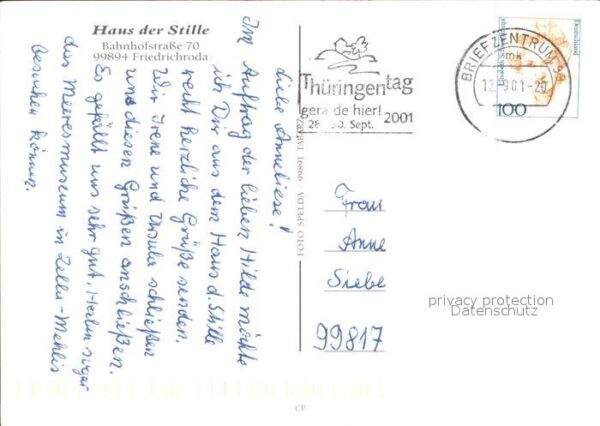 Haus der Stille
Bahnhofstraße 70
99894 Friedrichroda
Liebe Anneliese!
Im Auftrag der lieben Hilde möchte
ich Dir aus dem Haus d. Stille
recht herzliche Grüße senden.
Wir Irene und Ursula schließen
uns diesen Grüßen anschließen.
Es gefällt uns sehr gut. Haben sogar
das Meeresmuseum in Zella-Mehlis
besuchen können.
FOTO SPELDA · 99891 TABARZ
Thüringentag
gera de hier!
28.-30. Sept. 2001
BRIEFZENTRUM 99
mk
12.-9.01-20
Deutschland
100
Frau
Anne
Siebe
99817
privacy protection
Datenschutz
CP